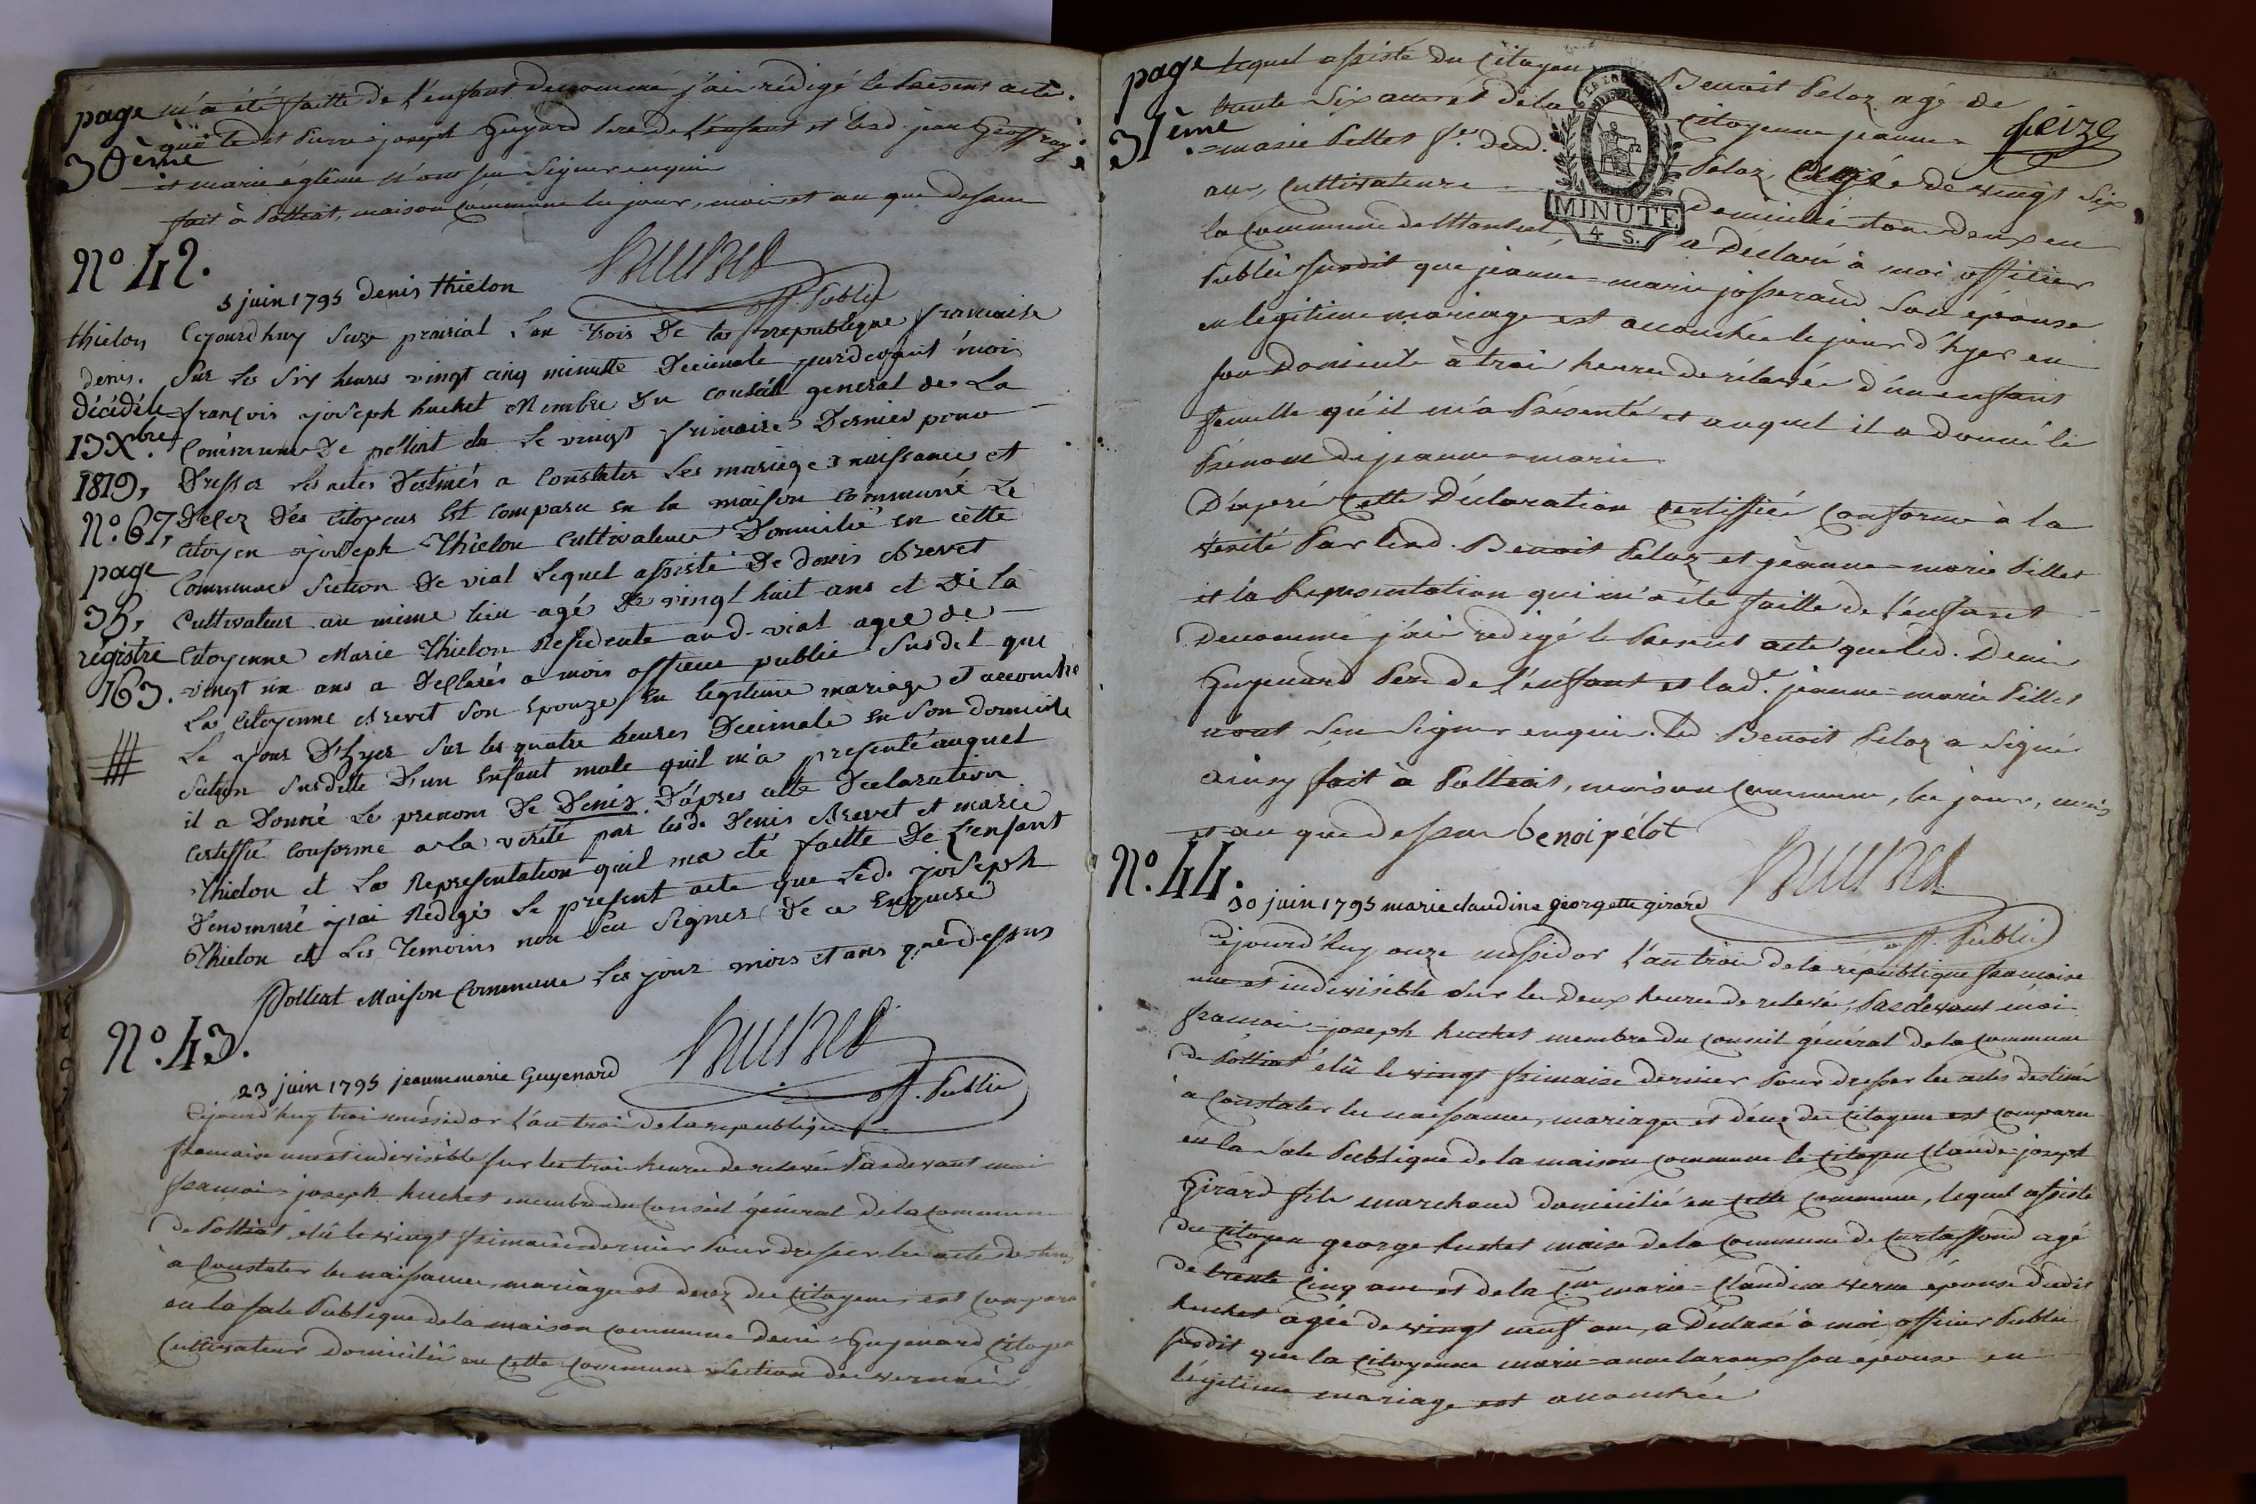 page
30ème
m'a été faitte de l'enfant denommé j'ai rédigé le present acte
que led et Pierre joseph Guyard Pere de l'enfant et lesd. jean Geoffray
et marie églême n'ont su signer enquis
fait à Polliat, maison commune les jour, mois et an que dessus
huchet
off. Public
N° 42.
5 juin 1795 denis thielon
thielon
denis.
décédé le
13 Xbre
1819,
N° 67,
page
35,
registre
163.
Cejourd'huy seze prairial L'an trois De la republique francaise
Sur les six heures vingt cinq minutte Decimale pardevant moi
françois joseph huchet Membre Du conseil general de La
Commune De polliat elu Le vingt frimaire Dernier pour
Dresser les actes Destinés a Constater Les mariage naissance et
Decez Des Citoyens Est comparu en la maison commune Le
Citoyen joseph Thielon cultivateur Domicilié en cette
Commune Section De vial Lequel assisté De denis Brevet
Cultivateur au même lieu agé De vingt huit ans et De la
Citoyenne Marie Thielon Residente aud. vial agee de
vingt un ans a Declarés a mois officier public Susdit que
La Citoyenne Brevet son Epouze En legitime mariage et accouché
Le jour D'hyer Sur les quatre heures Decimale en son domicile
Section Susditte D'un Enfant male quil m'a presenté auquel
il a Donné Le prenom De Denis. D'apres cette Declaration
Certiffié conforme a la verité par lesd. Denis Brevet et marie
Thielon et La Representation quil ma eté faitte De L'enfant
Denommé jai Rédigé Le present acte que Led. joseph
Thielon et Les Temoins non seu Signer De ce Enquise
Polliat Maison Commune Les jour mois et ans que dessus
huchet
off. Public
N° 43.
23 juin 1795 jeanne marie Guyenard
Cejourd'huy trois messidor l'an trois de la republique
francaise une et indivisible sur les trois heures de relevée Pardevant moi
francois joseph huchet membre du Conseil général de la Commune
de Polliat, élû le vingt frimaire dernier Pour dresser les actes destinés
à Constater les naissances, mariages et decez des Citoyens, est comparu
en la sale Publique de la maison commune denis Guyenard Citoyen
Cultivateur domicilié en cette commune section des vernées
page
31ème
seize
Lequel assisté du Citoyen Benoit Peloz agé de
trente six ans et de la citoyenne jeanne
marie Pillet fe. dud. Peloz, agée de vingt six
ans, cultivateurs domiciliés tous deux en
la commune de a Déclaré à moi officier
LA LOI
MINUTE
4 S.
Public susdit que jeanne marie josserand son épouse
en légitime mariage est accouchée le jour d'hyer en
son Domicile à trois heures de relevée d'un enfant
femelle qu'il m'a Présenté et auquel il a donné le
Prénom de jeanne marie
D'après cette Déclaration certiffiée conforme à la
verité Par lesd. Benoit Peloz et jeanne marie Pillet
et la Representation qui m'a été faitte de l'enfant
denommé j'ai redigé le Present acte que led. Denis
Guyenard Pere de l'enfant et lad.e jeanne marie Pillet
n'ont seu signer enquis. led Benoit Peloz a signé
ainsy fait à Polliat, maison commune, les jour, mois
et an que dessus benoi pélot
huchet
off. Public
N° 44.
30 juin 1795 marie claudine georgette girard
Cejourd'huy onze messidor l'an trois de la république francaise
une et indivisible sur les Deux heures de relevée, Pardevant moi
francois joseph huchet membre du conseil général de la commune
de Polliat élû le vingt frimaire dernier Pour dresser les actes destinés
à constater les naissances, mariages et décez des citoyens est comparu
en la sale Publique de la maison commune le citoyen Claude joseph
Girard fils marchand domicilié en cette commune, lequel assisté
du citoyen george huchet maire de la commune de Curtaffond agé
de trente cinq ans et de la Cnne marie Claudine verne épouse dudit
huchet agée de vingt neuf ans, a Déclaré à moi officier Public
susdit que la citoyenne marie anne laroux son épouse en
légitime mariage est accouchée